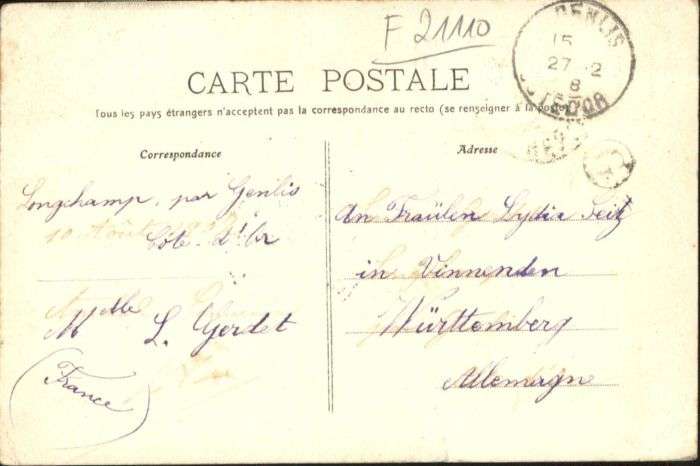 F 21110
GENLIS
15
27 - 2
8
COTE-D'OR
CARTE POSTALE
Tous les pays étrangers n'acceptent pas la correspondance au recto (se renseigner à la poste)
Correspondance
Longchamp, par Genlis
Côte-d'Or
Mlle L. Gerdet
(France)
Adresse
An Fraülen Lydia Seitz
in Vinnenden
Württemberg
Allemagne